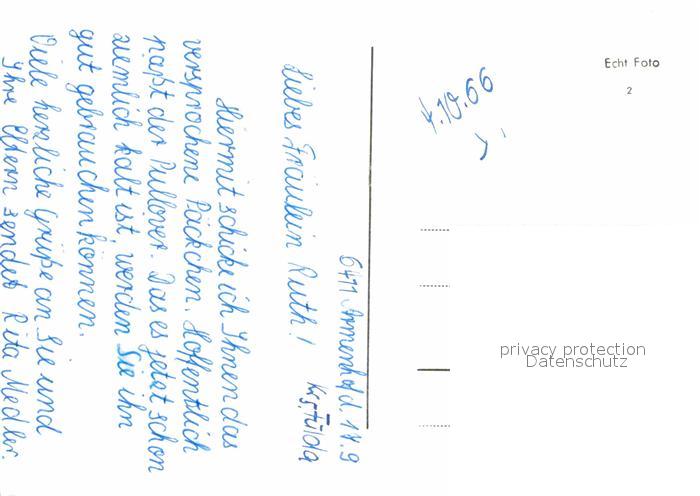 Armenhof d. 14.9
Krs. Fulda
Liebes Fräulein Ruth!
Hiermit schicke ich Ihnen das
versprochene Päckchen. Hoffentlich
paßt der Pullover. Das es jetzt schon
ziemlich kalt ist, werden Sie ihn
gut gebrauchen können.
Viele herzliche Grüße an Sie und
Ihre Eltern sendet Rita Medler.
4.10.66
Echt Foto
2
privacy protection
Datenschutz